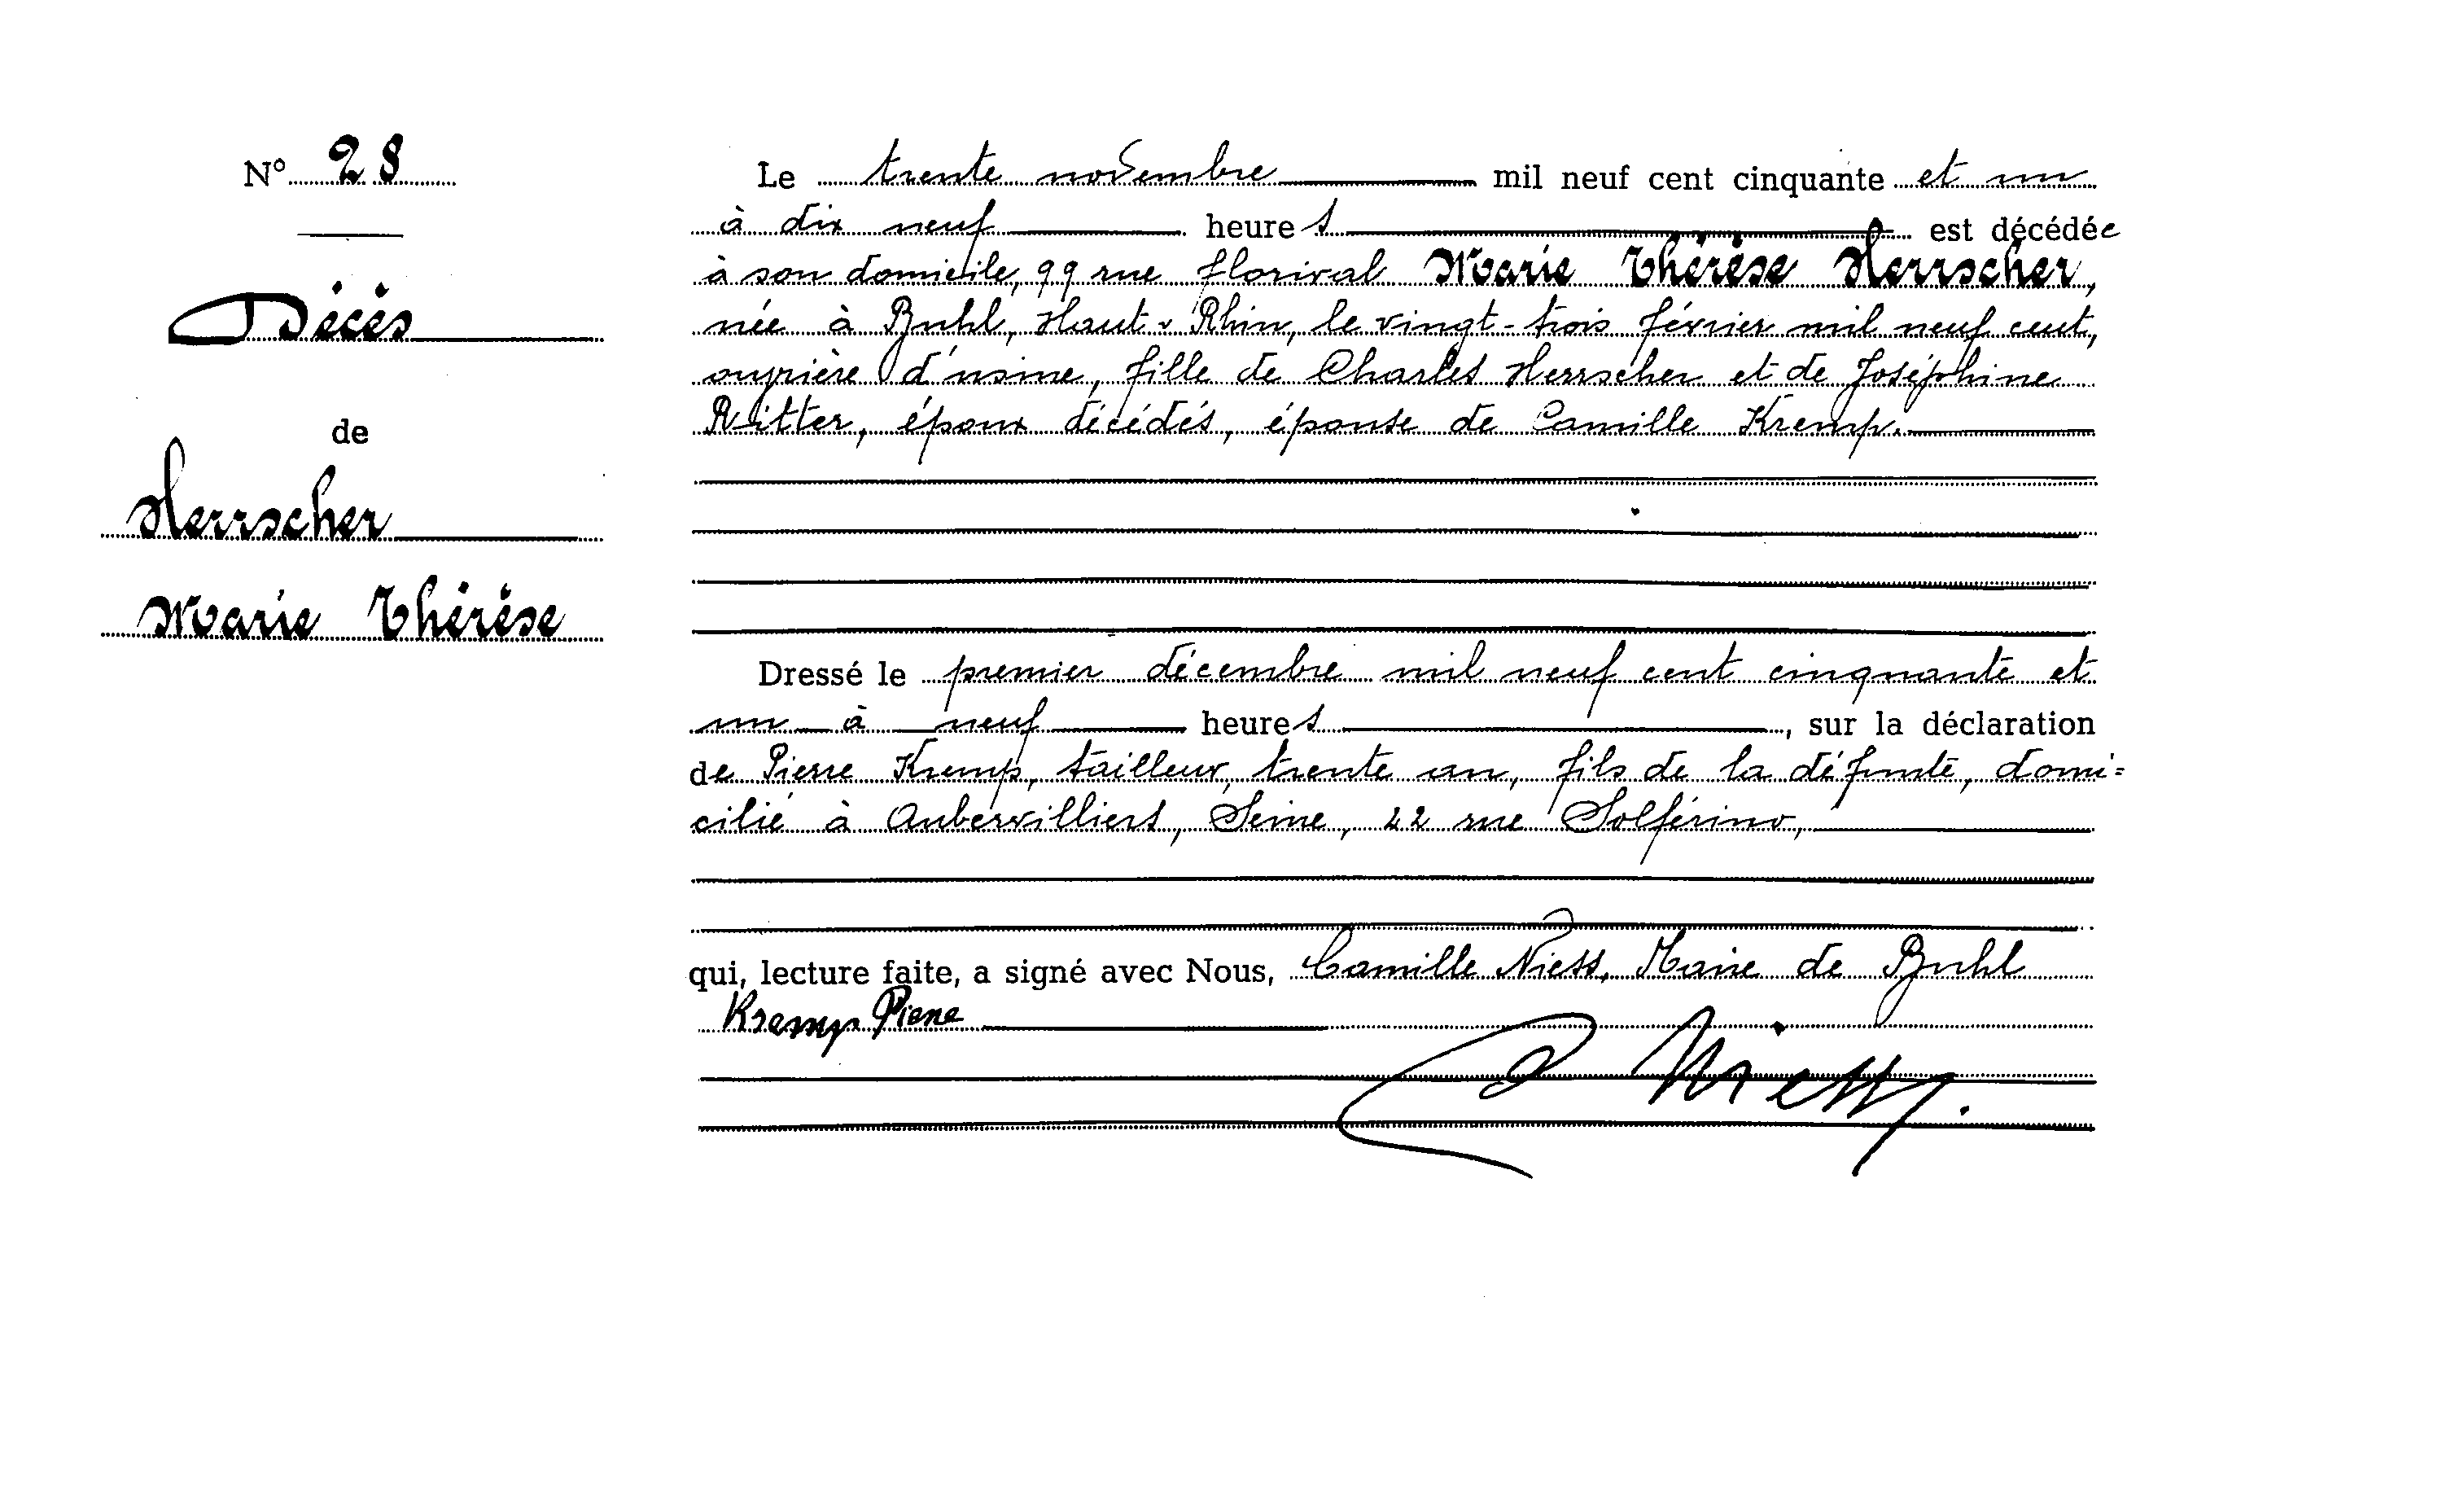 N° 28
Décès
de
Herrscher
Marie Thérèse
Le trente novembre mil neuf cent cinquante et un
à dix neuf heures est décédée
à son domicile, 99 rue florival Marie Thérèse Herrscher,
née à Buhl, Haut-Rhin, le vingt-trois février mil neuf cent,
ouvrière d'usine, fille de Charles Herrscher et de Joséphine
Ritter, époux décédés, épouse de Camille Kremp.
Dressé le premier décembre mil neuf cent cinquante et
un à neuf heures, sur la déclaration
de Pierre Kremp, tailleur, trente an, fils de la défunte, domi=
cilié à Aubervilliers, Seine, 22 rue Solférino,
qui, lecture faite, a signé avec Nous, Camille Niess, Maire de Buhl
Kremp Pierre
C Niess.